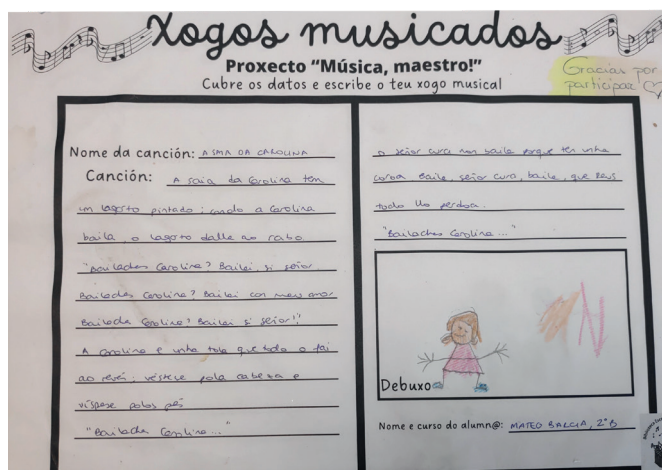 Xogos musicados
Proxecto "Música, maestro!"
Cubre os datos e escribe o teu xogo musical
Gracias por
participar
Nome da canción: A SAIA DA CAROLINA
Canción: A saia da Carolina ten
un lagarto pintado; cando a Carolina
baila, o lagarto dálle ao rabo.
"Bailaches Carolina? Bailei, si señor
Bailaches Carolina? Bailei con meu amor
Bailache Carolina? Bailei si señor!"
A Carolina e unha tola que todo o fai
ao revés; vístese pola cabeza e
víspese polos pés
"Bailache Carolina..."
O señor cura non baila porque ten unha
coroa. Baile, señor cura, baile, que Deus
todo llo perdoa.
"Bailaches Carolina..."
Debuxo
Nome e curso do alumn@: MATEO BARCIA, 2º B